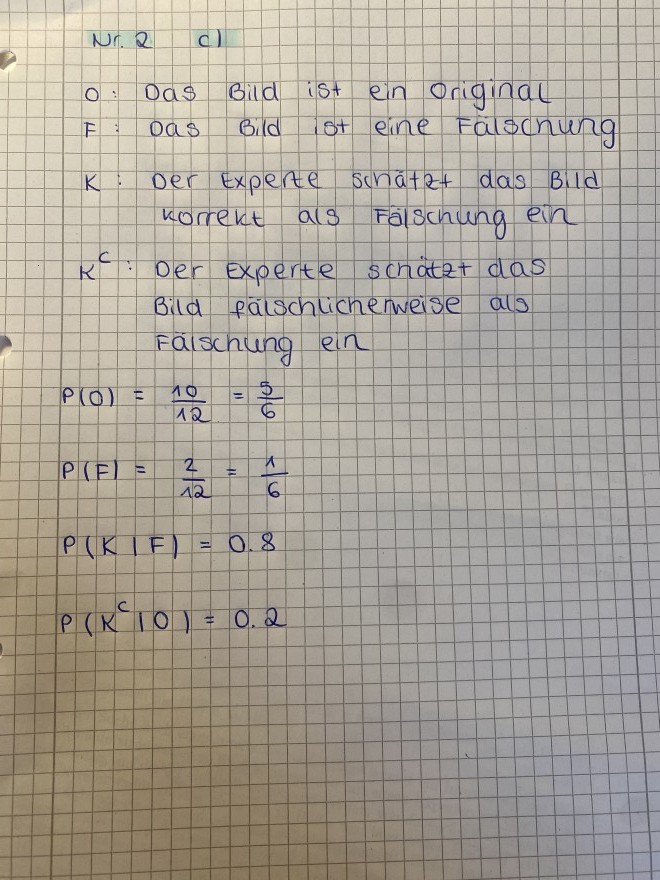 Nr. 2 c)
O : Das Bild ist ein Original
F : Das Bild ist eine Fälschung
K : Der Experte schätzt das Bild
korrekt als Fälschung ein
K^C : Der Experte schätzt das
Bild fälschlicherweise als
Fälschung ein
P(O) = 10/12 = 5/6
P(F) = 2/12 = 1/6
P(K|F) = 0.8
P(K^C|O) = 0.2